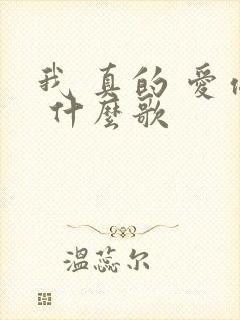 我真的愛
什麼歌
溫蕊尔